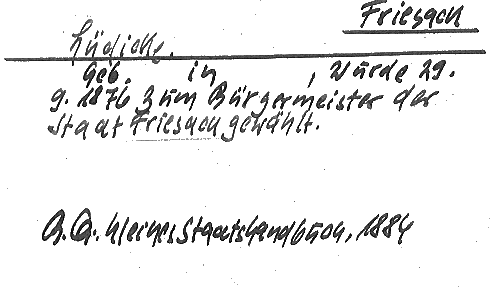 Friesach
Lüdicke.
Geb. in , wurde 29.
9. 1876 zum Bürgermeister der
Stadt Friesach gewählt.
B.A. kleines Staatshandbuch, 1884